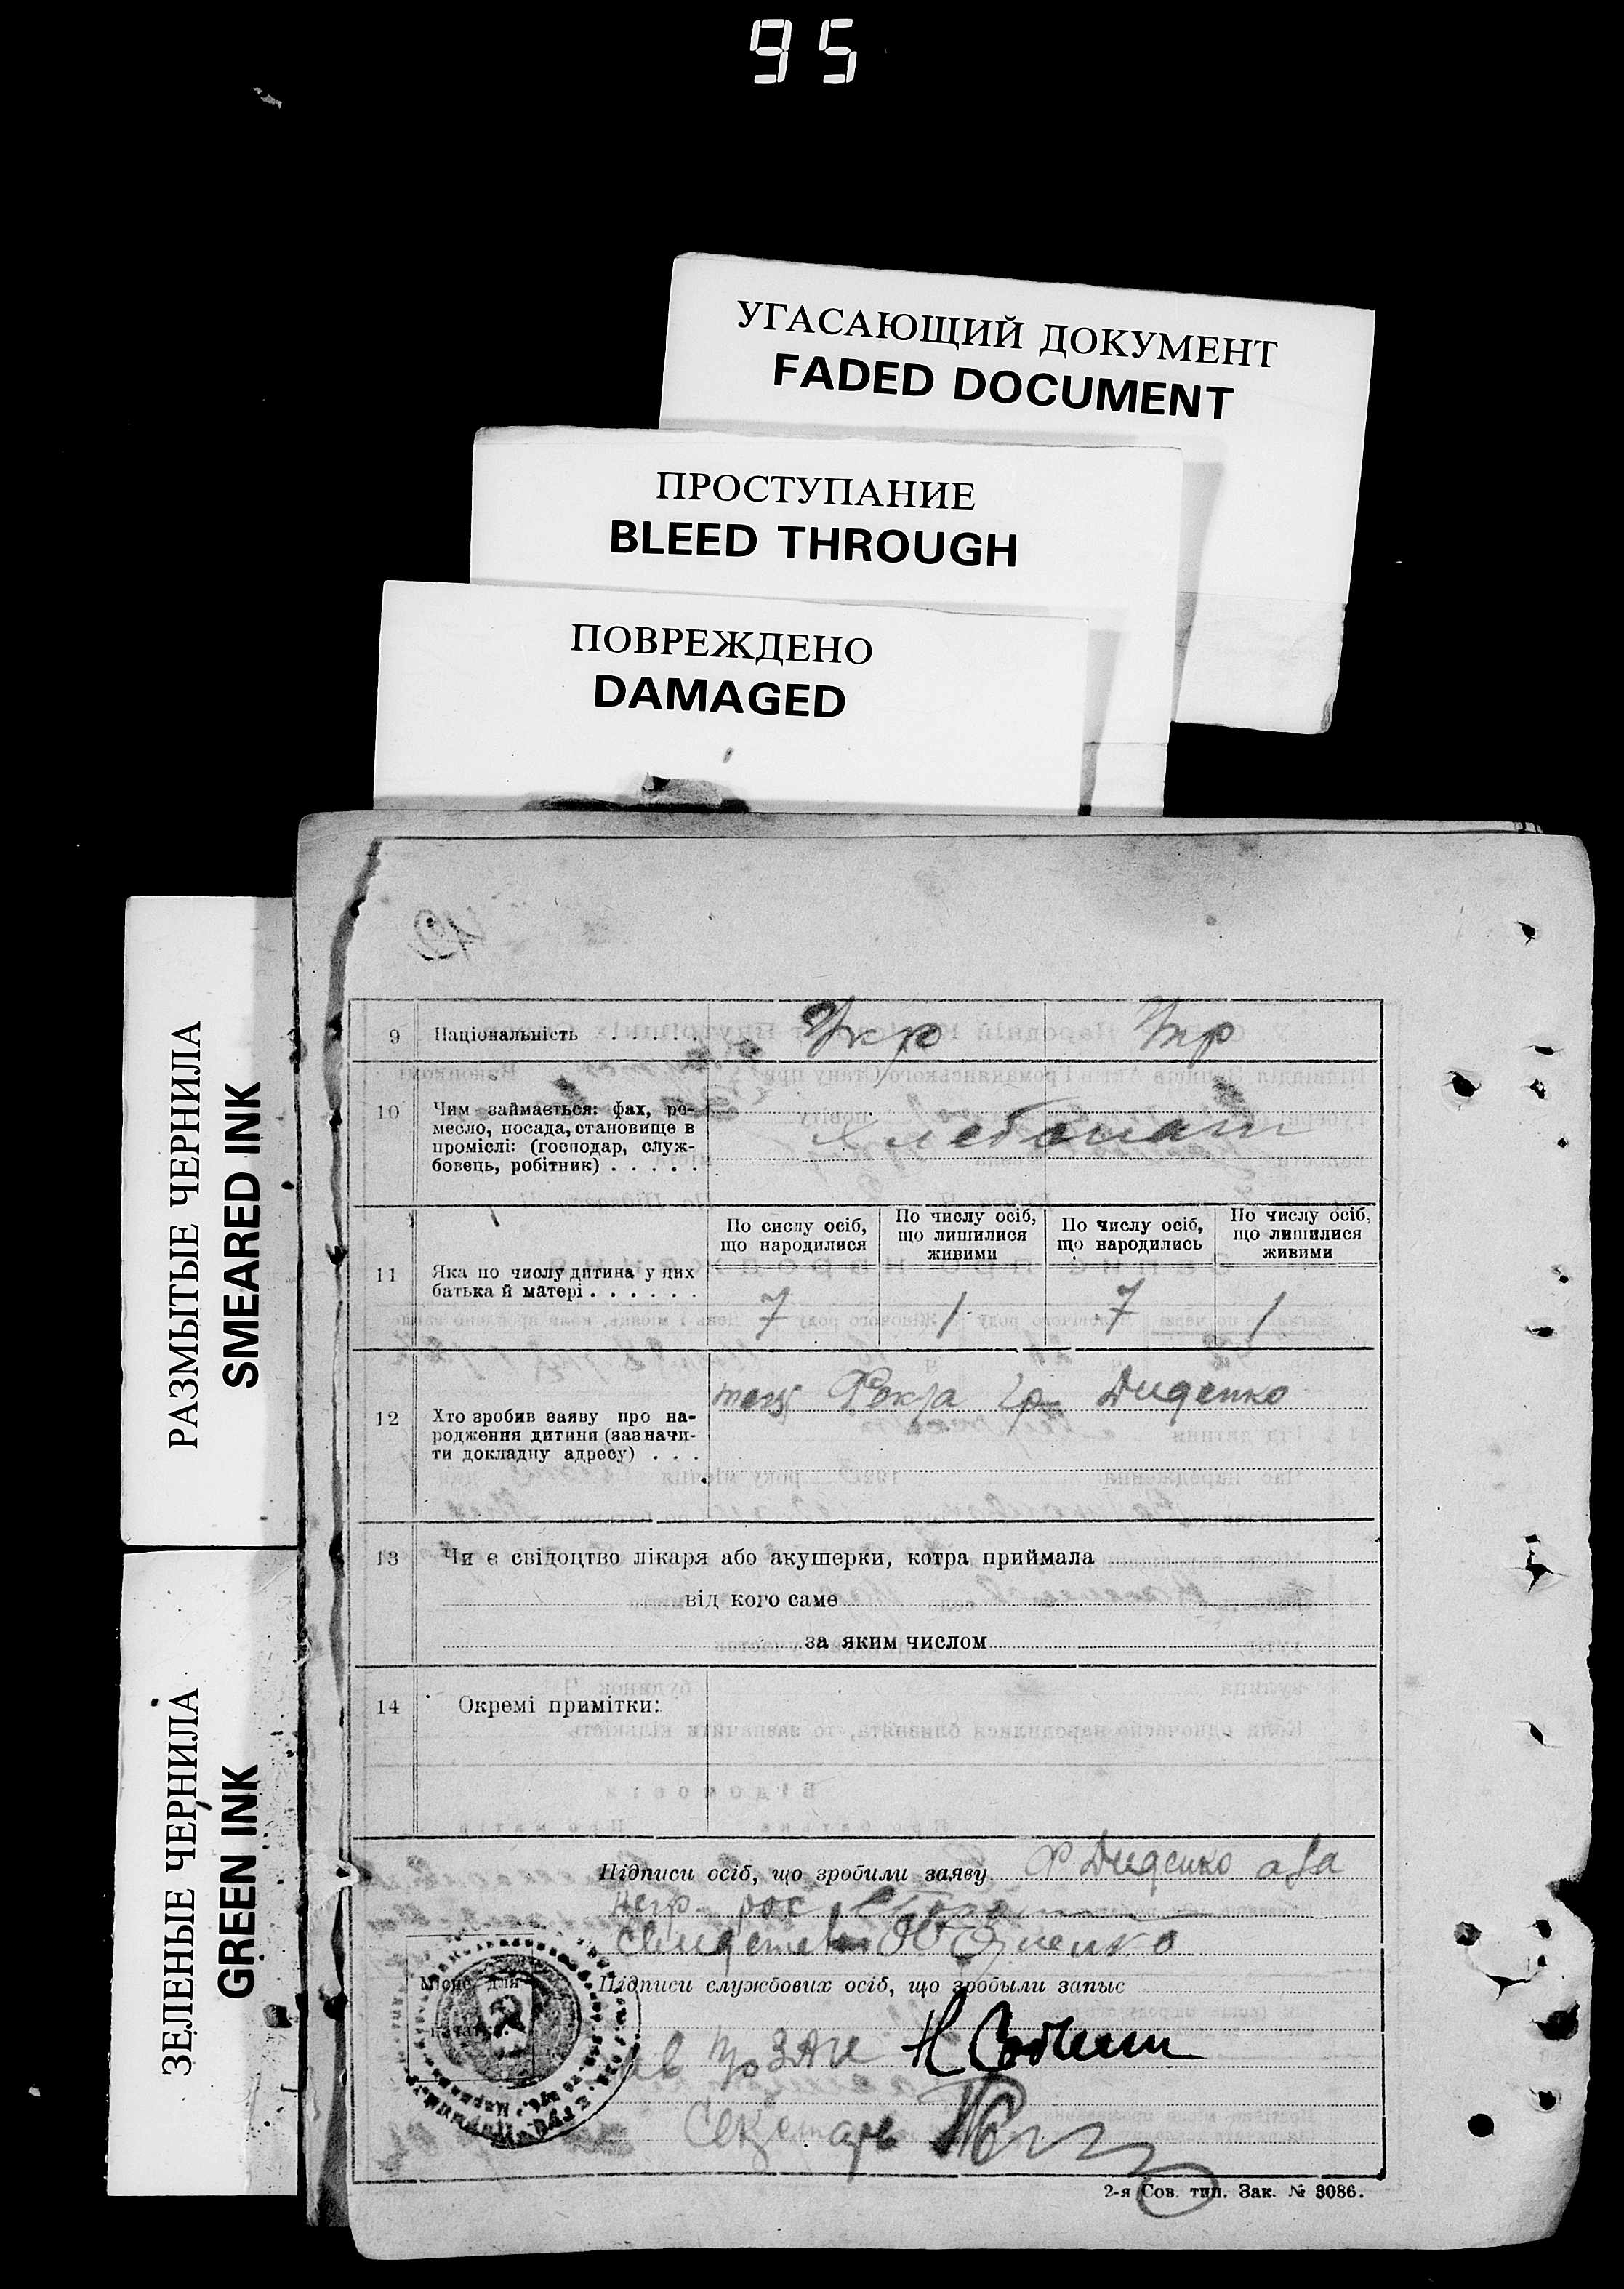 95
УГАСАЮЩИЙ ДОКУМЕНТ
FADED DOCUMENT
ПРОСТУПАНИЕ
BLEED THROUGH
ПОВРЕЖДЕНО
DAMAGED
РАЗМЫТЫЕ ЧЕРНИЛА
SMEARED INK
ЗЕЛЕНЫЕ ЧЕРНИЛА
GREEN INK
9 Національність . . . . . . Укр Укр
10 Чим займається: фах, ре-
месло, посада, становище в
проміслі: (господар, служ-
бовець, робітник) . . . . .
Хлебопаш
11 Яка по числу дитина у цих
батька й матері . . . . . .
По сислу осіб,
що народилися
По числу осіб,
що лишилися
живими
По числу осіб,
що народились
По числу осіб,
що лишилися
живими
7 1 7 1
12 Хто зробив заяву про на-
родження дитини (зазначи-
ти докладну адресу) . . .
Фекла Гр Диденко
13 Чи є свідоцтво лікаря або акушерки, котра приймала
від кого саме
за яким числом
14 Окремі примітки:
Підписи осіб, що зробили заяву Ф Диденко
негр рос
Підписи службових осіб, що зробыли запыс
Місце для
печати
Секретарь
2-я Сов. тип. Зак. № 3086.